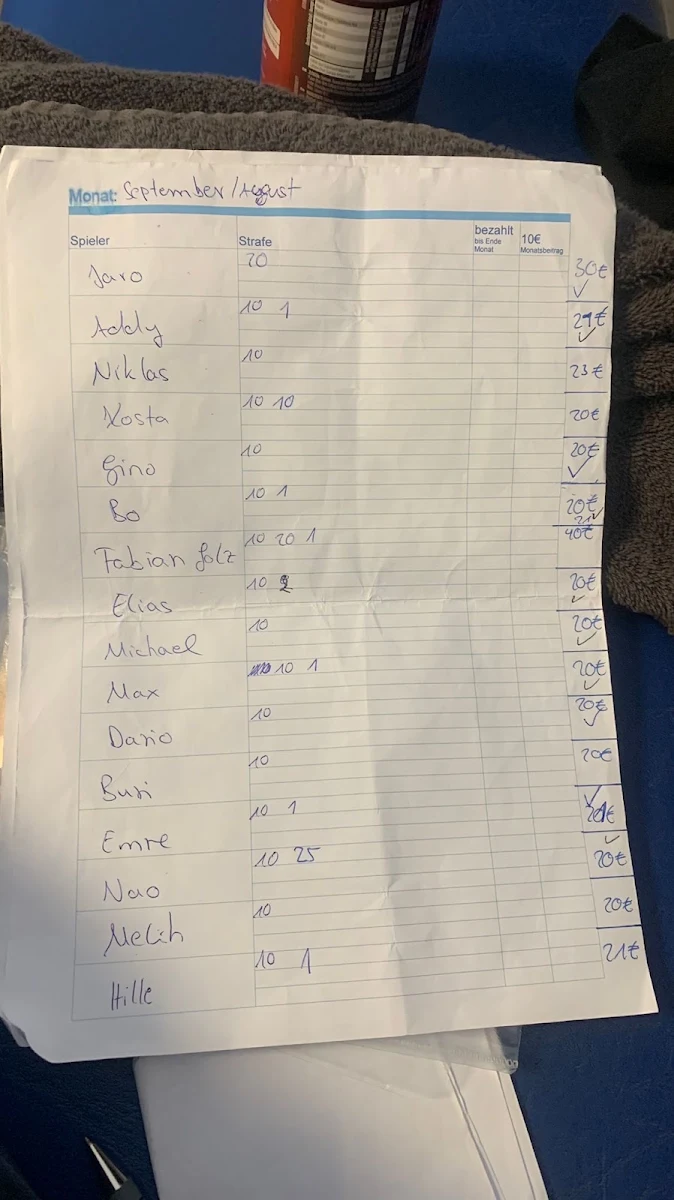 Monat: September/August
Spieler Strafe bezahlt bis Ende Monat 10€ Monatsbeitrag
Jaro 20 30€ ✓
Addy 10 1 21€ ✓
Niklas 10 23€
Kosta 10 10 20€
Gino 10 20€ ✓
Bo 10 1 20€ 21 ✓
Fabian Golz 10 20 1 40€
Elias 10 2 20€ ✓
Michael 10 20€ ✓
Max 10 1 20€ ✓
Dario 10 20€ ✓
Buri 10 20€
Emre 10 1 ✓ 21€
Nao 10 25 ✓ 20€
Melih 10 20€
Hille 10 1 21€